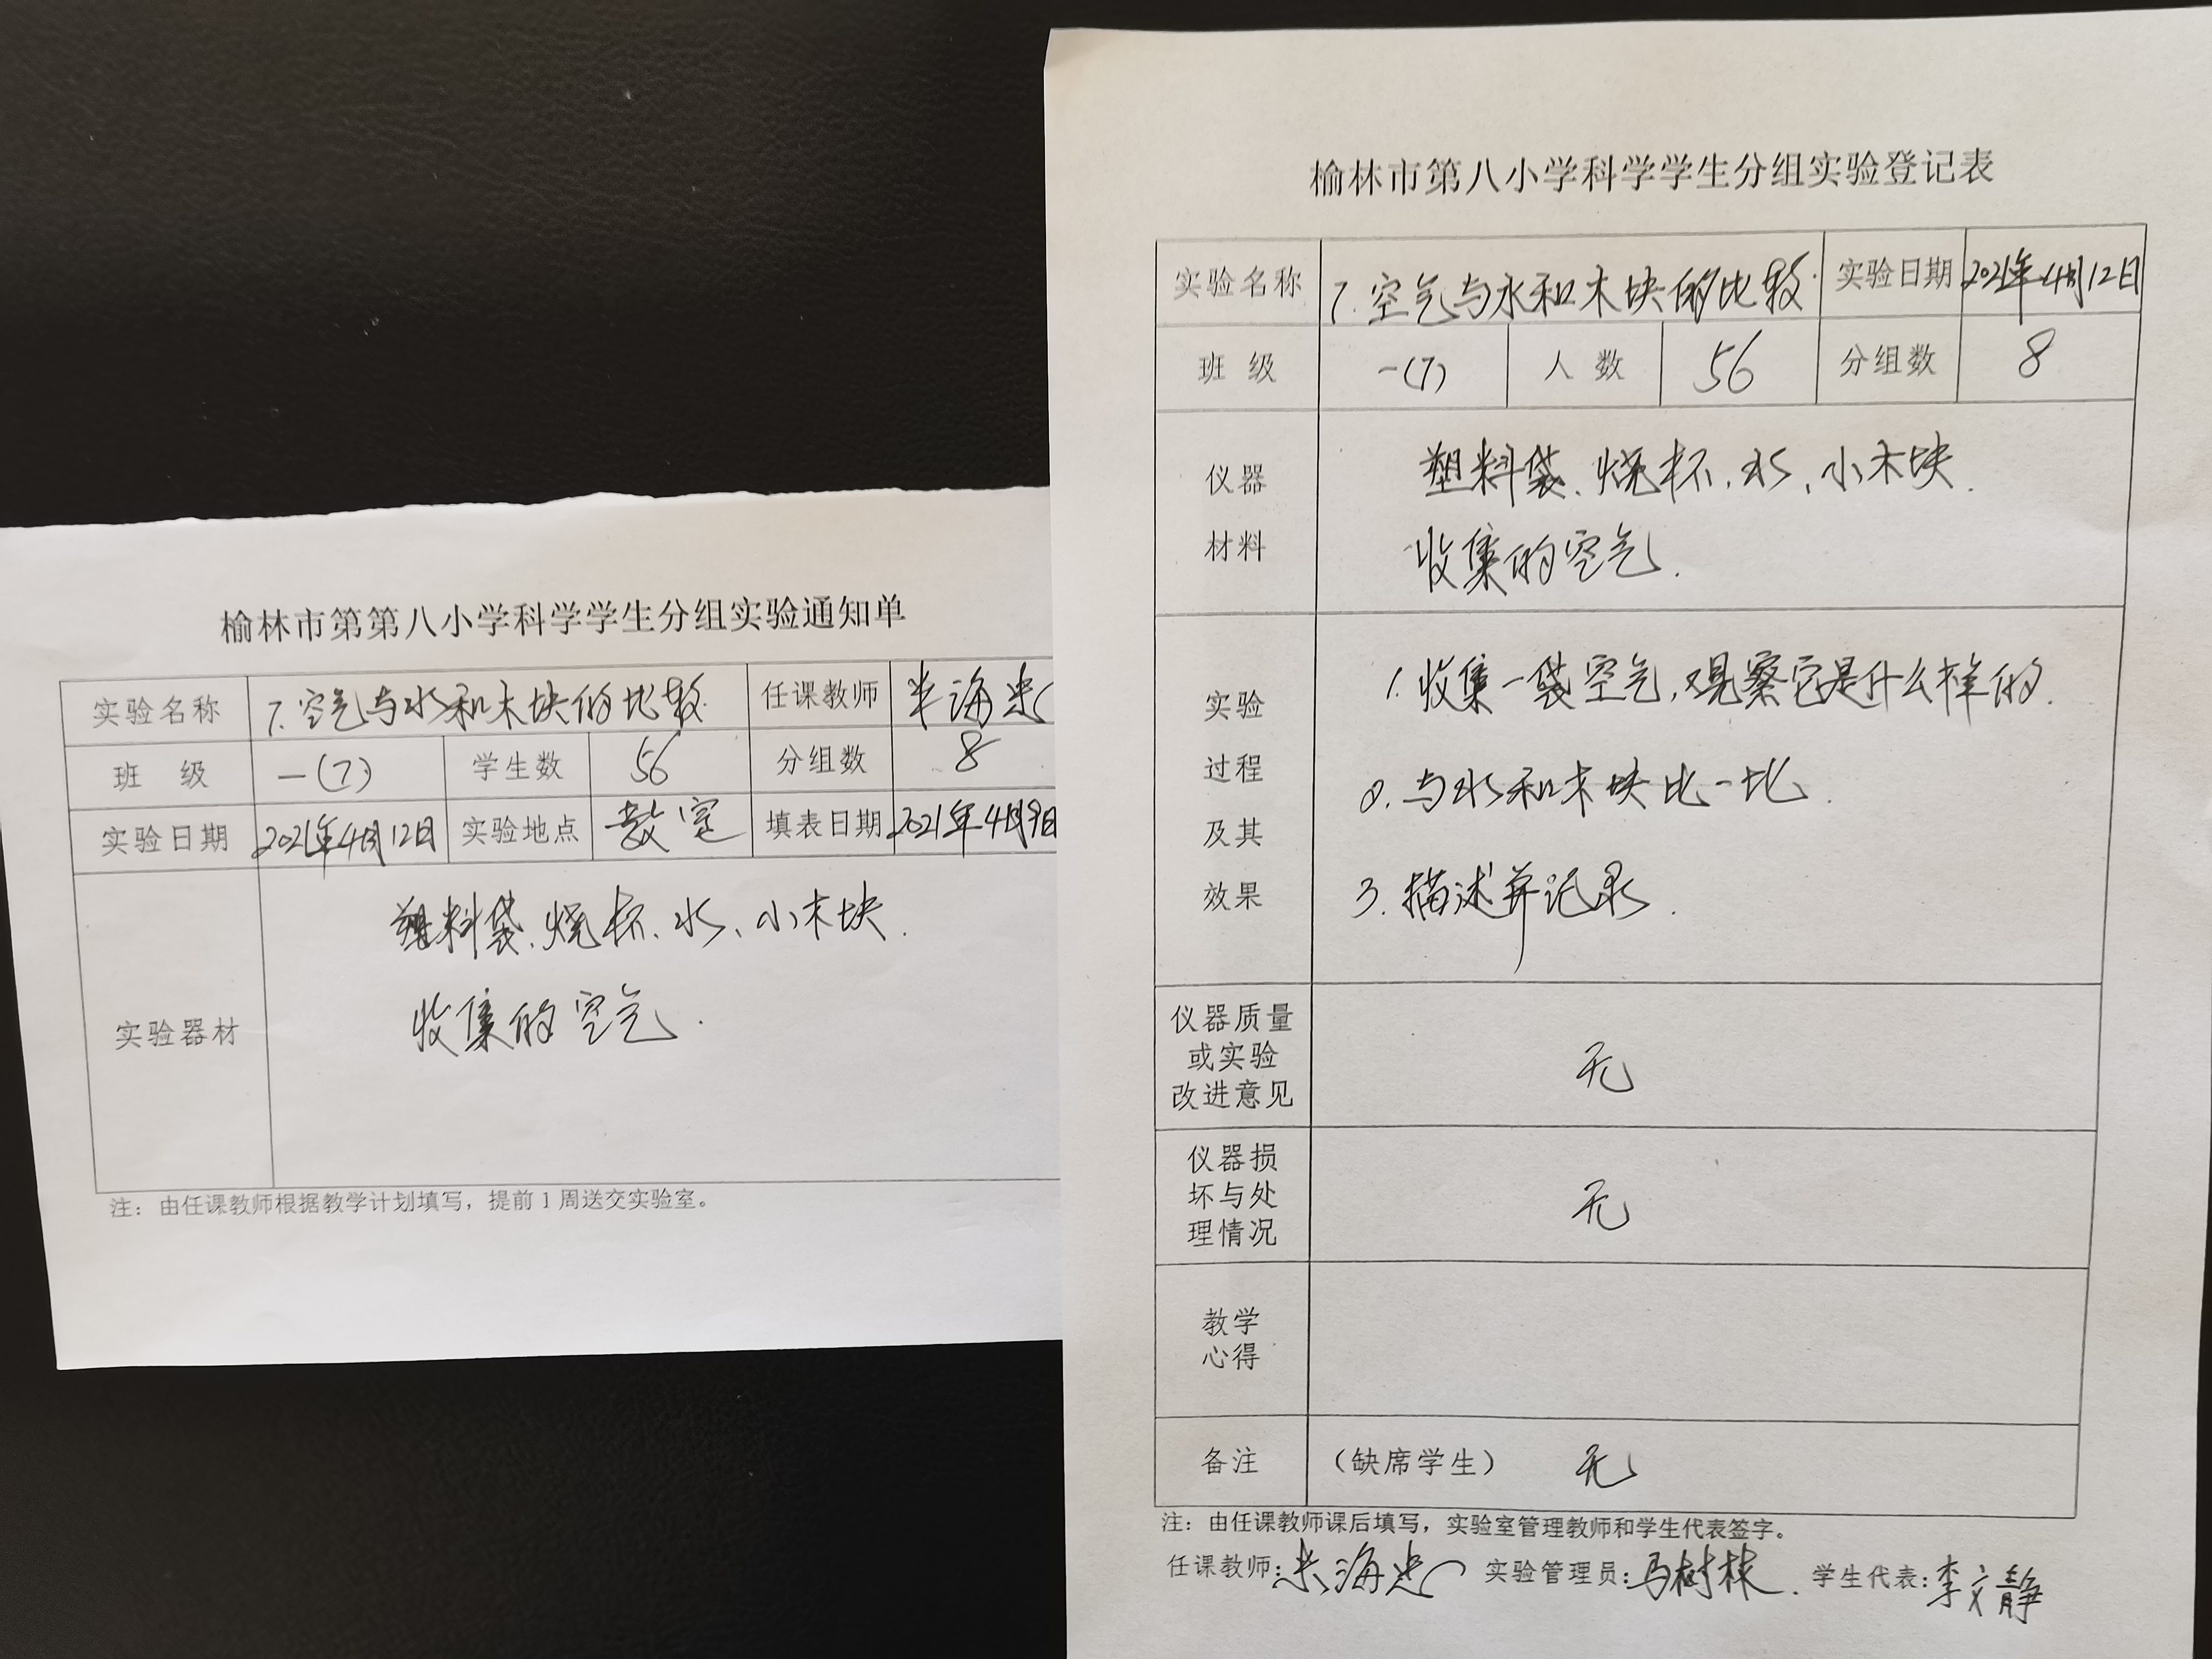 榆林市第第八小学科学学生分组实验通知单
实验名称 7.空气与水和木块的比较 任课教师 米海忠
班 级 一(7) 学生数 56 分组数 8
实验日期 2021年4月12日 实验地点 教室 填表日期 2021年4月9日
实验器材
塑料袋、烧杯、水、小木块.
收集的空气.
注：由任课教师根据教学计划填写，提前1周送交实验室。
榆林市第八小学科学学生分组实验登记表
实验名称 7.空气与水和木块的比较. 实验日期 2021年4月12日
班 级 一(7) 人 数 56 分组数 8
仪器
材料
塑料袋、烧杯、水、小木块.
收集的空气.
实验
过程
及其
效果
1.收集一袋空气,观察它是什么样的.
2.与水和木块比一比.
3.描述并记录.
仪器质量
或实验
改进意见
无
仪器损
坏与处
理情况
无
教学
心得
备注 （缺席学生） 无
注：由任课教师课后填写，实验室管理教师和学生代表签字。
任课教师:米海忠 实验管理员:马树林. 学生代表:李文静